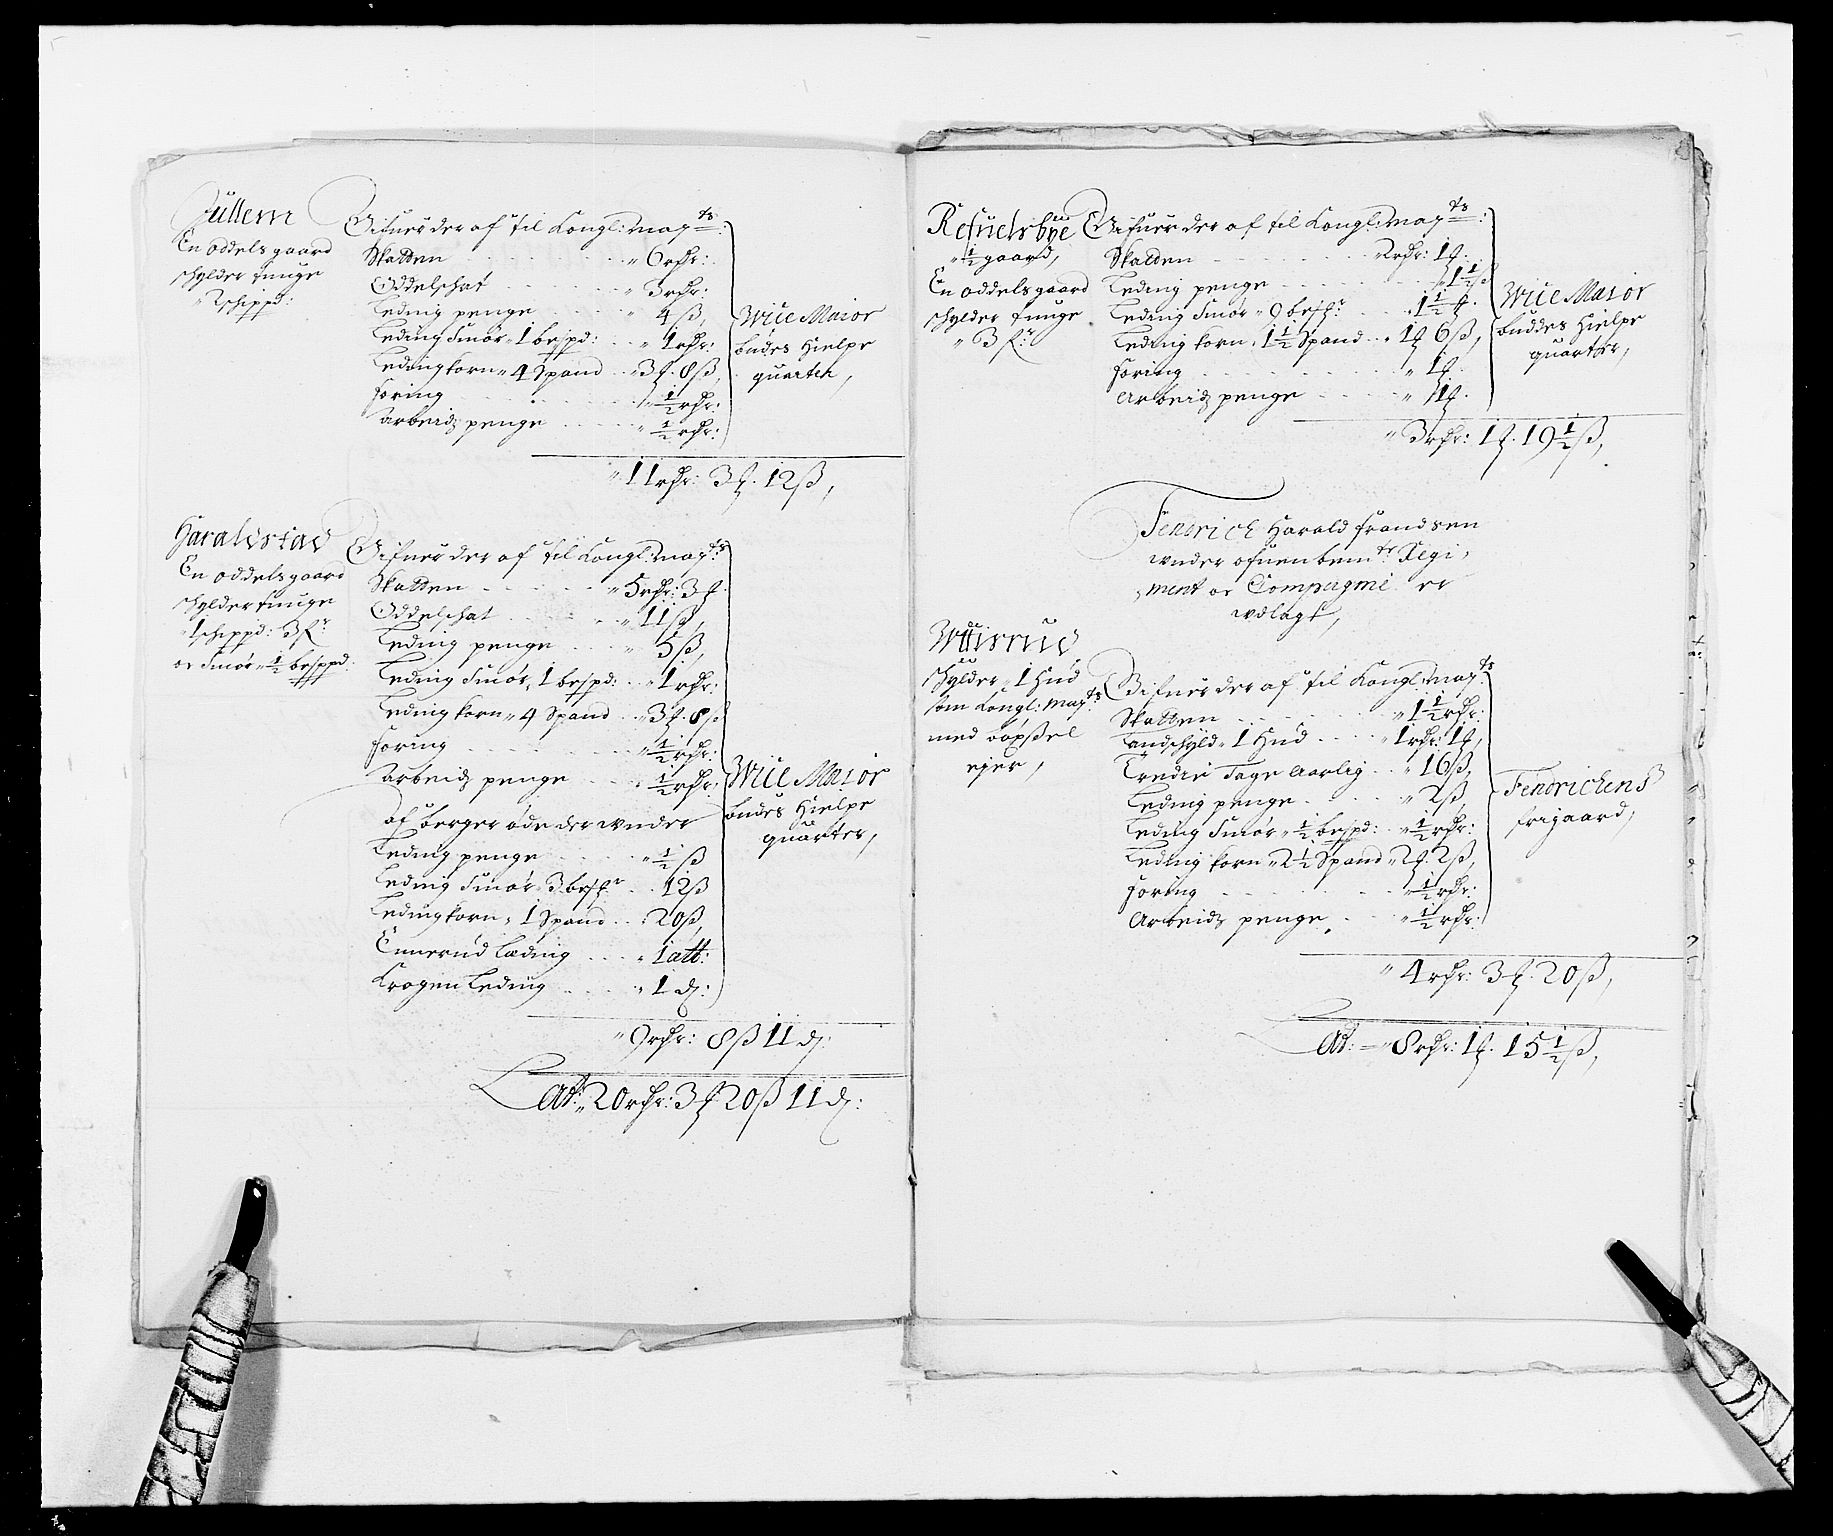 Jullem
En oddels gaard
schylder tunge
" 2 schippd:
Gifuer der af til Kongl: May ts:
Skatten " 6 rdr:
Oddelschat " 3 rdr:
Leding penge " 4 ß,
Leding Smør " 1 bespd: " 1 rdr:
Leding korn " 4 Spand " 3 q. 8 ß,
Foring " ½ rdr:
Arbeids penge " ½ rdr:
Wice Maior
budes Hielpe
quarter,
" 11 rdr: 3 q. 12 ß,
Haraldstad
En oddels gaard
schylder tunge
" 1 schippd: 3 f r
oc Smør " ½ besppd:
Gifuer der af til Kongl: May ts
Skatten " 5 rdr: 3 q.
Oddelschat " 11 ß,
Leding penge " 5 ß,
Leding Smør " 1 bespd: " 1 rdr:
Leding korn " 4 Spand " 3 q. 8 ß
Foring " ½ rdr:
Arbeids penge " ½ rdr:
af berger øde der wnder
Leding penge " ½ ß
Leding Smør " 3 besf r 12 ß
Leding korn " 1 Spand " 20 ß,
Ennerud Leding " 1 alb:
Krogen Leding " 1 d:
Wice Maior
budes Hielpe
quarter,
" 9 rdr: 8 ß 11 d:
Lat: " 20 rdr: 3 q. 20 ß 11 d:
Refuelsbye
" ½ gaard,
En oddels gaard
schylder tunge
" 3 f r
Gifuer der af til Kongl: May ts:
Skatten " 2 rdr: 1 q.
Leding penge " 1½ ß
Leding Smør " 9 besf r " 1½ q.
Leding korn " 1½ Spand " 1 q 6 ß,
Foring " 1 q.
Arbeids penge " 1 q.
Wice Maior
buddes Hielpe
quarter,
" 3 rdr: 1 q. 19½ ß,
Fendrich Harald Frandsen
wnder ofuenbem te Regi,
,ment oc Compagnie er
wdlagt,
schylder " 1 Hud
som Kongl: May ts
med bøxsel
ejer,
Gifuer der af til Kongl: May ts
Skatten " 1½ rdr:
Landschyld " 1 Hud " 1 rdr: 1 q,
Tredie Tage Aarlig " 16 ß,
Leding penge " 2 ß,
Leding Smør " ½ bespd: " ½ rdr:
Leding korn " 2½ Spand " 2 q. 2 ß,
Foring " ½ rdr:
Arbeids penge " ½ rdr:
Fendrichens
frigaard,
" 4 rdr: 3 q. 20 ß,
Lat: " 8 rdr: 1 q. 15½ ß,